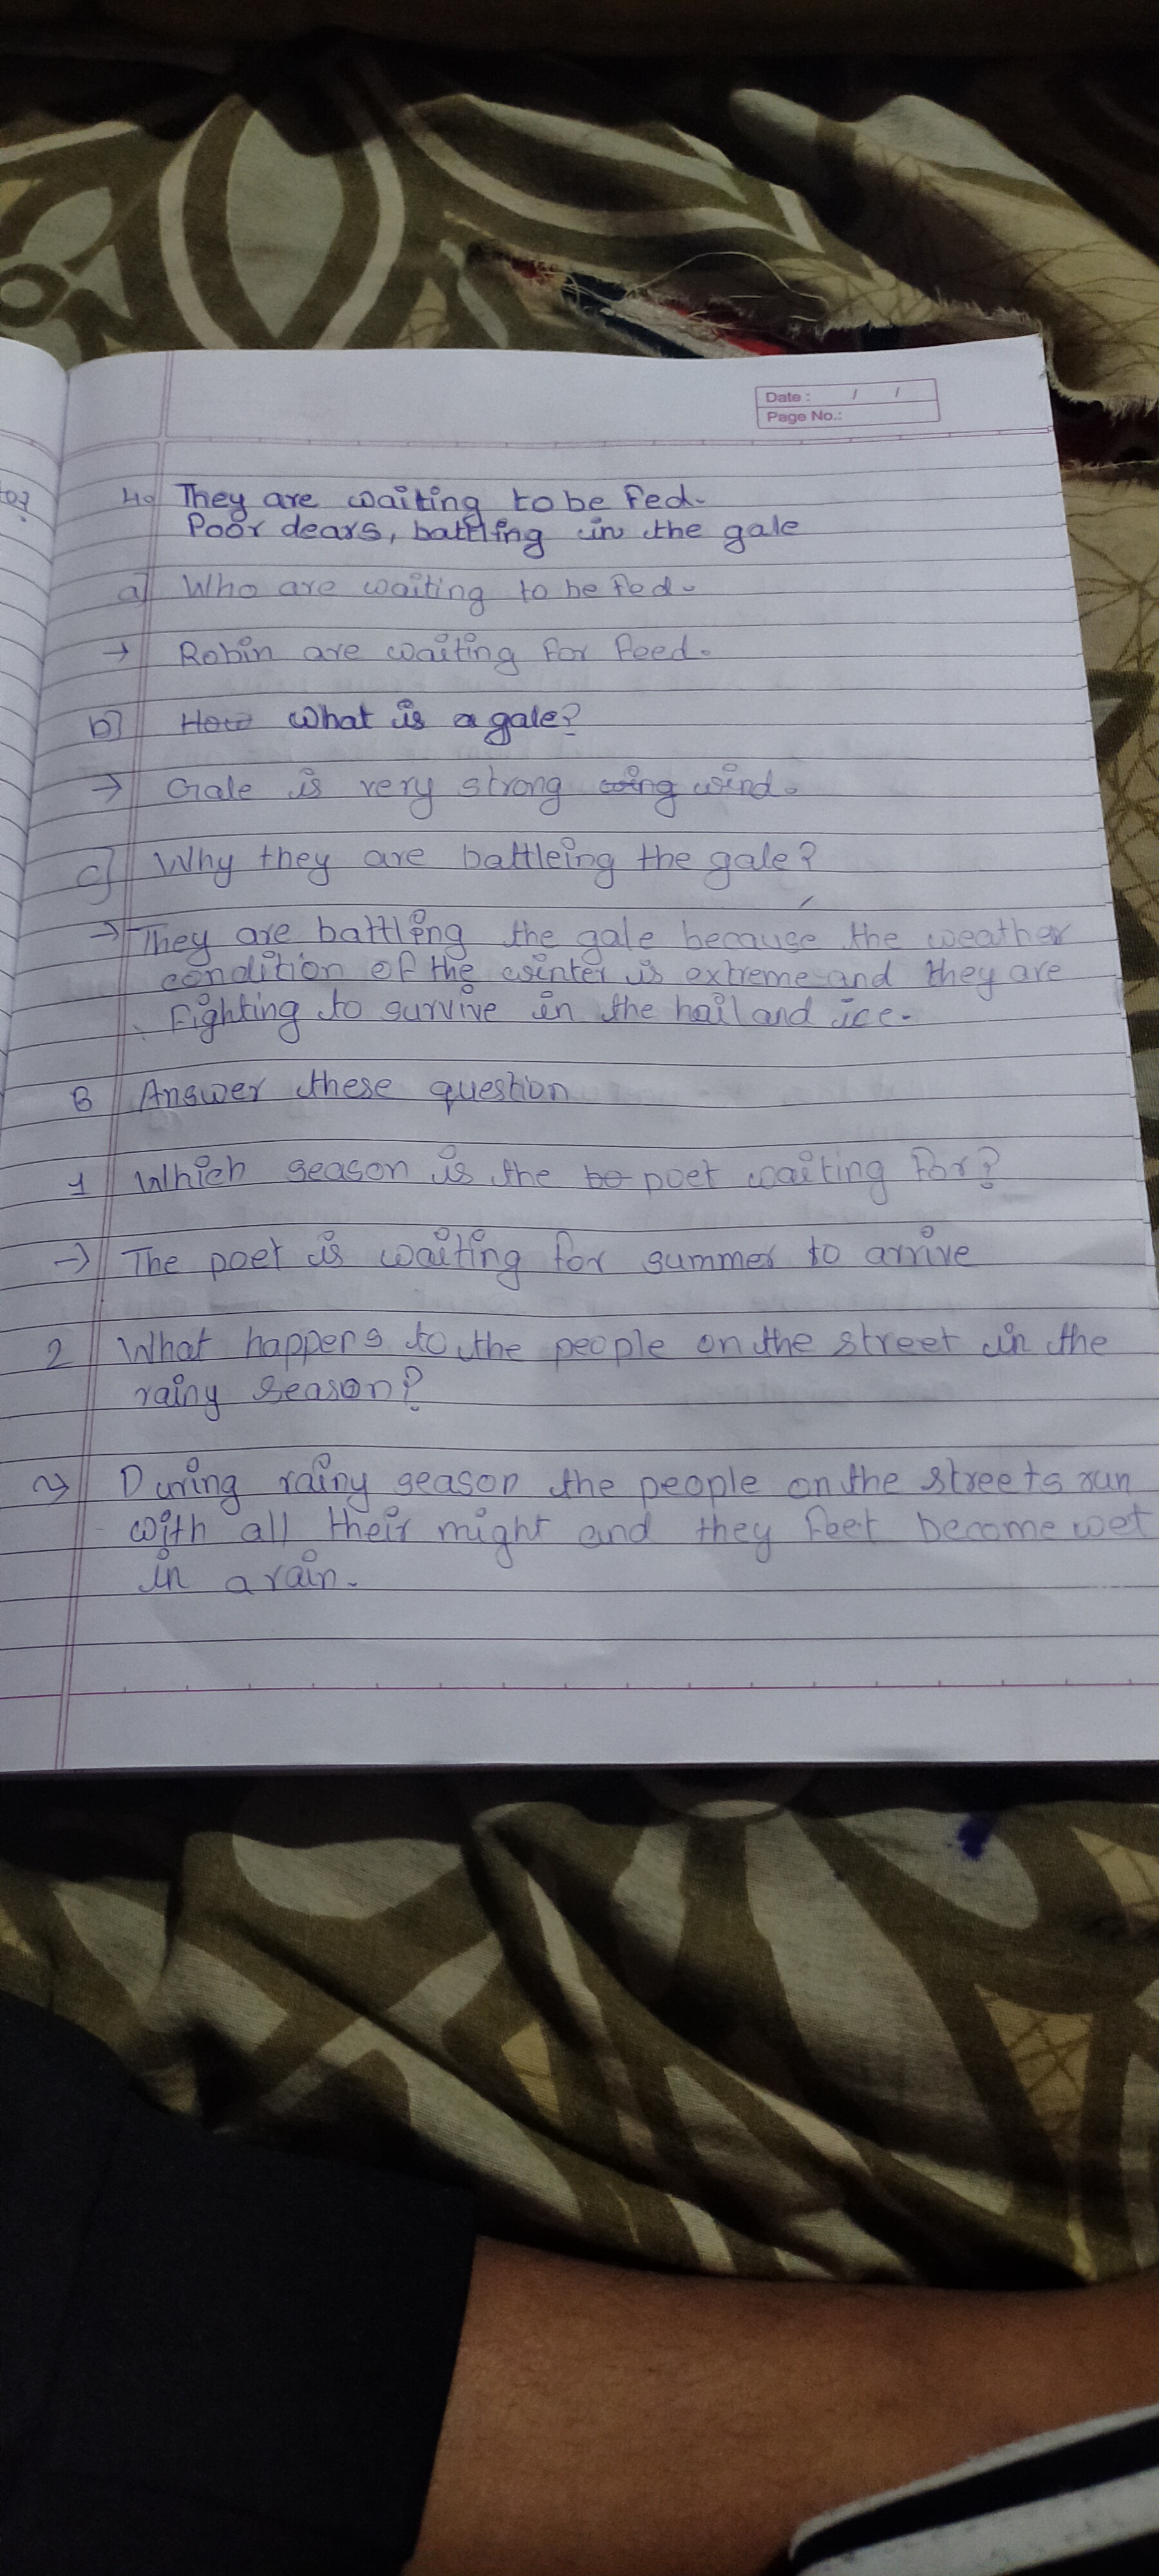 Date: / /
Page No.:
4. They are waiting to be fed.
Poor dears, battling in the gale
a] Who are waiting to be fed.
→ Robin are waiting for feed.
b] How What is a gale?
→ Gale is very strong wing wind.
c] Why they are battleing the gale?
→ They are battling the gale because the weather
condition of the winter is extreme and they are
fighting to survive in the hail and ice.
B Answer these question
1 Which season is the bo poet waiting for?
→ The poet is waiting for summer to arrive
2 What happens to the people on the street in the
rainy season?
→ During rainy season the people on the streets run
with all their might and they feet become wet
in a rain.